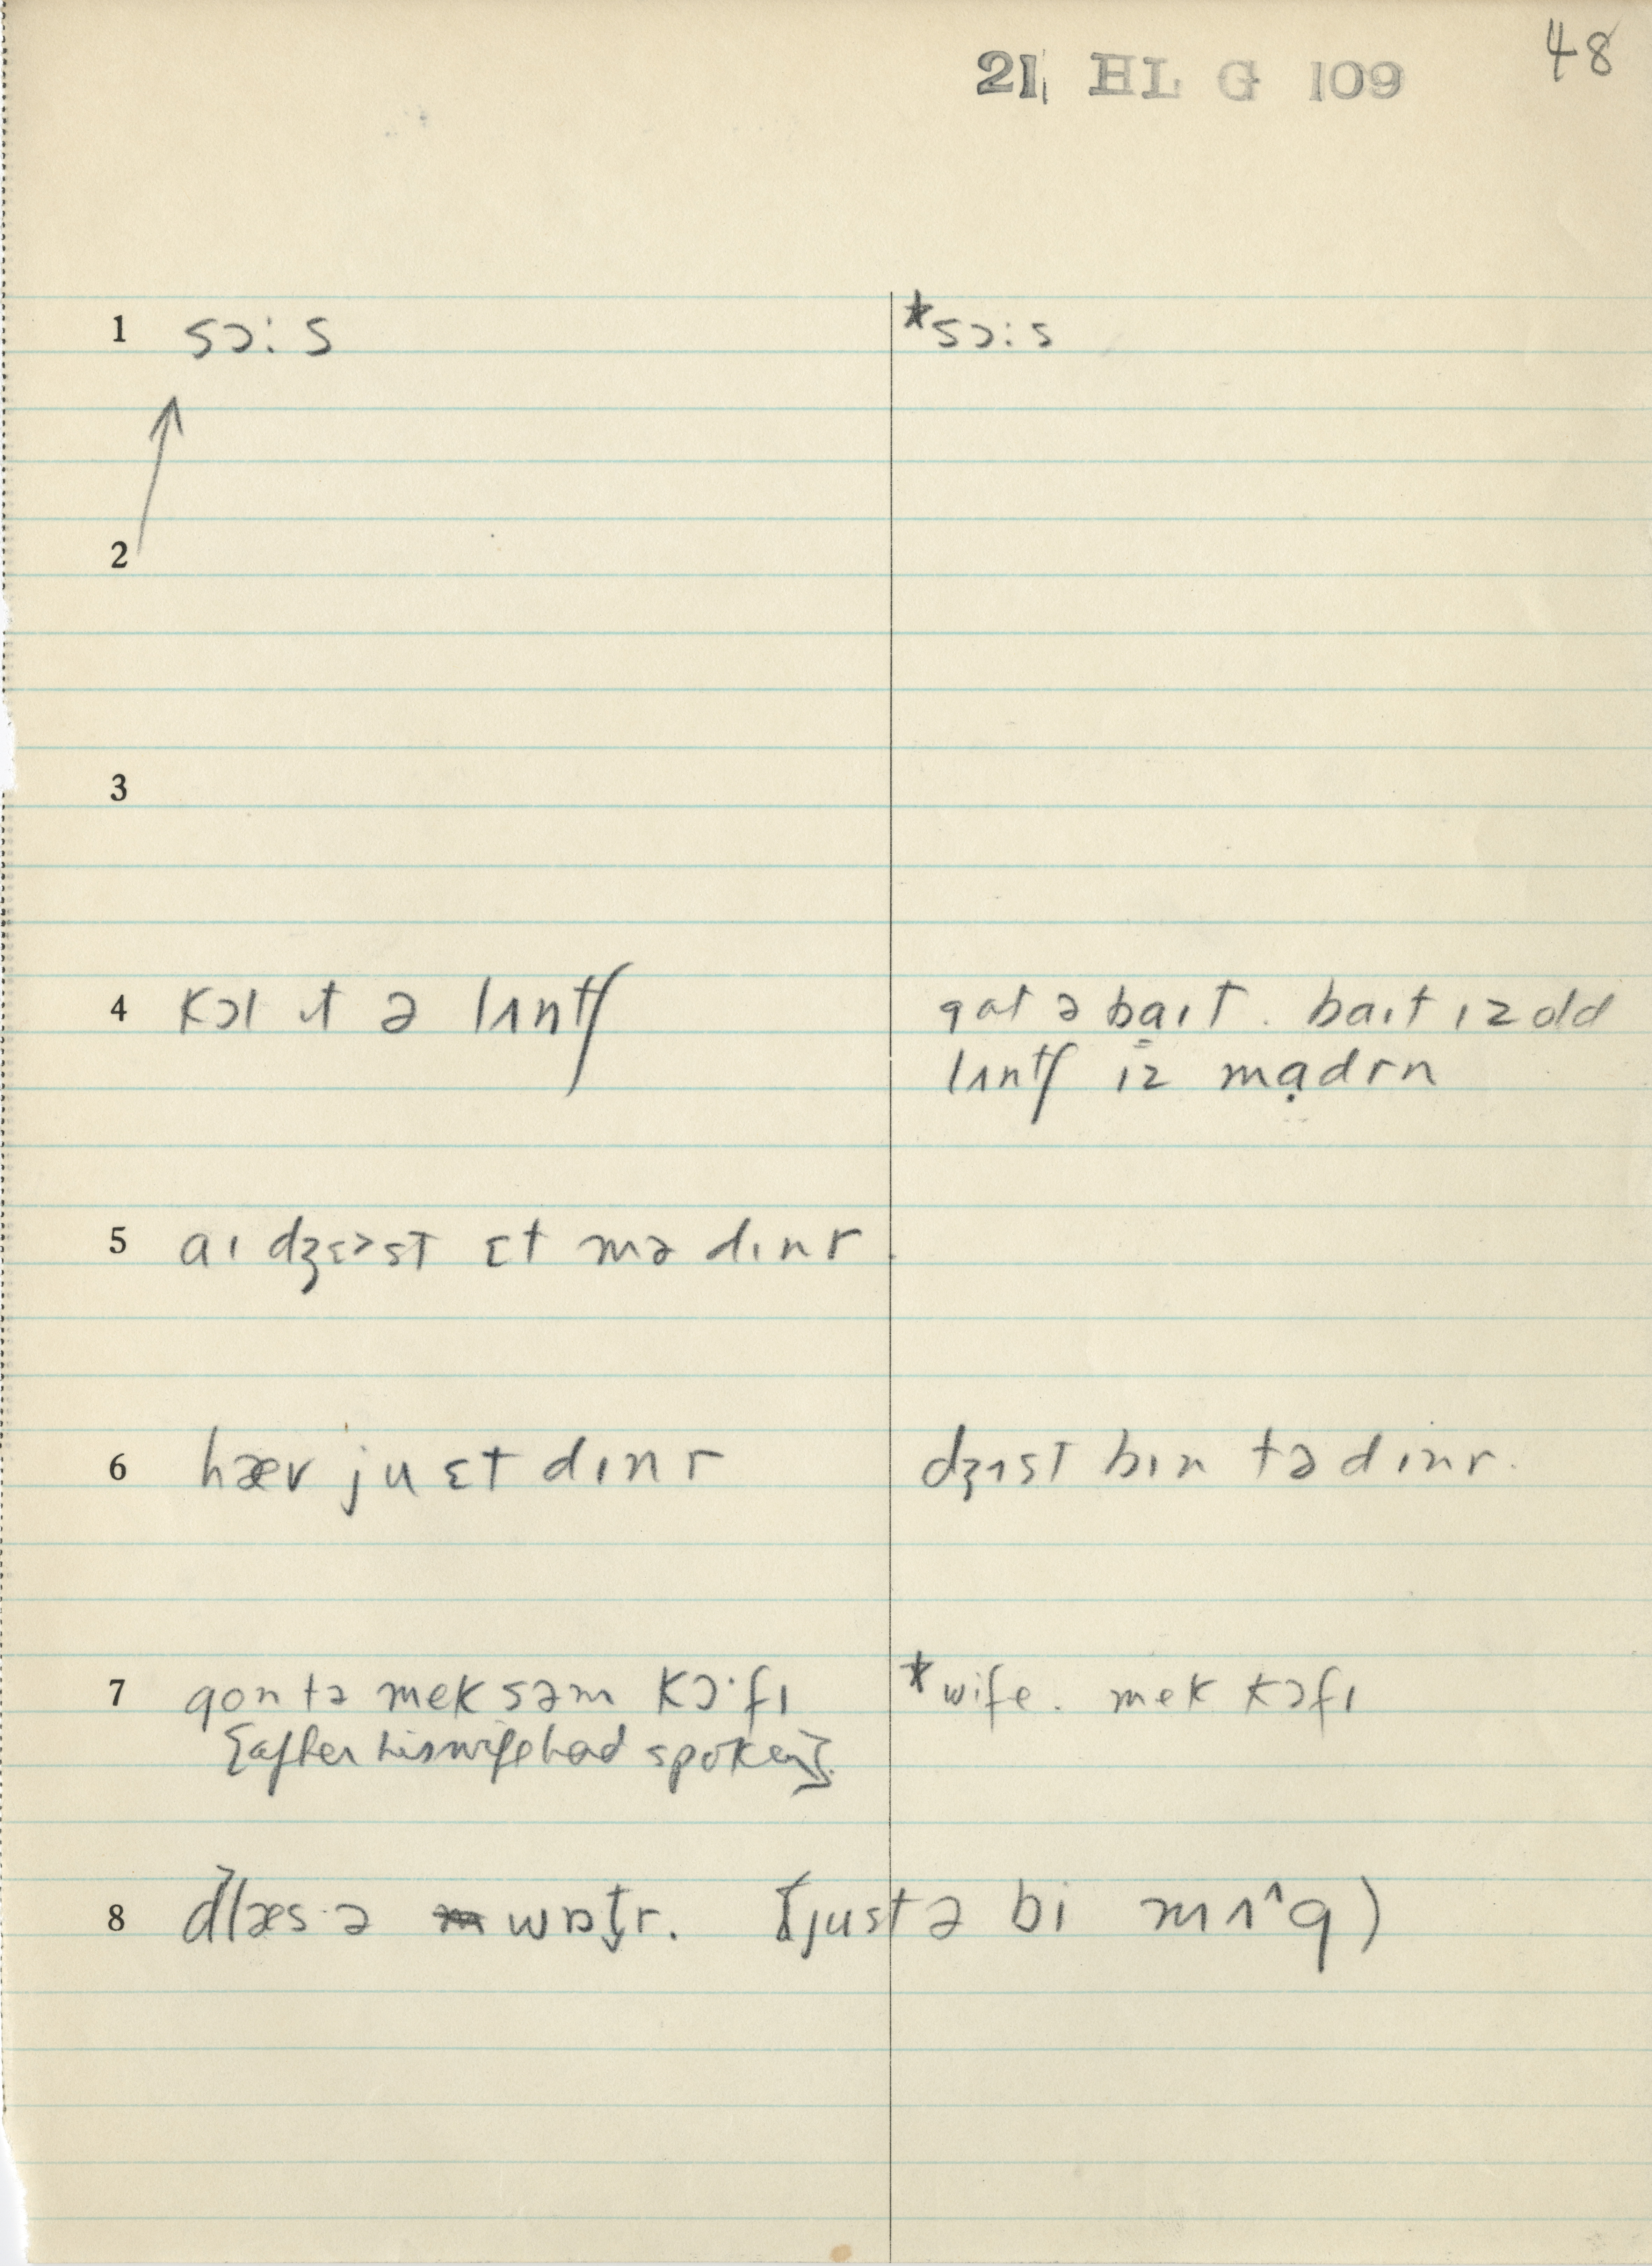 48
21 HL G 109
1 sɔːs *sɔːs
2
3
4 kɔl ɪt ə lʌntʃ gat ə baɪt. baɪt ɪz old
lʌntʃ iz mạdrn
5 aɪ dʒɛ>st ɛt mə dɪnr.
6 hæv ju ɛt dɪnr dʒʌst bɪn tə dɪnr.
7 gon tə mek səm kɔ·fɪ *wife. mek kɔfɪ
[after his wife had spoken].
8 ə wɒt̬r. (just ə bi mʌ^g)